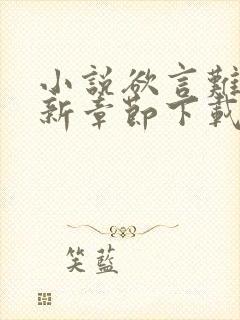 小說欲言難
新章節下載
笑藍